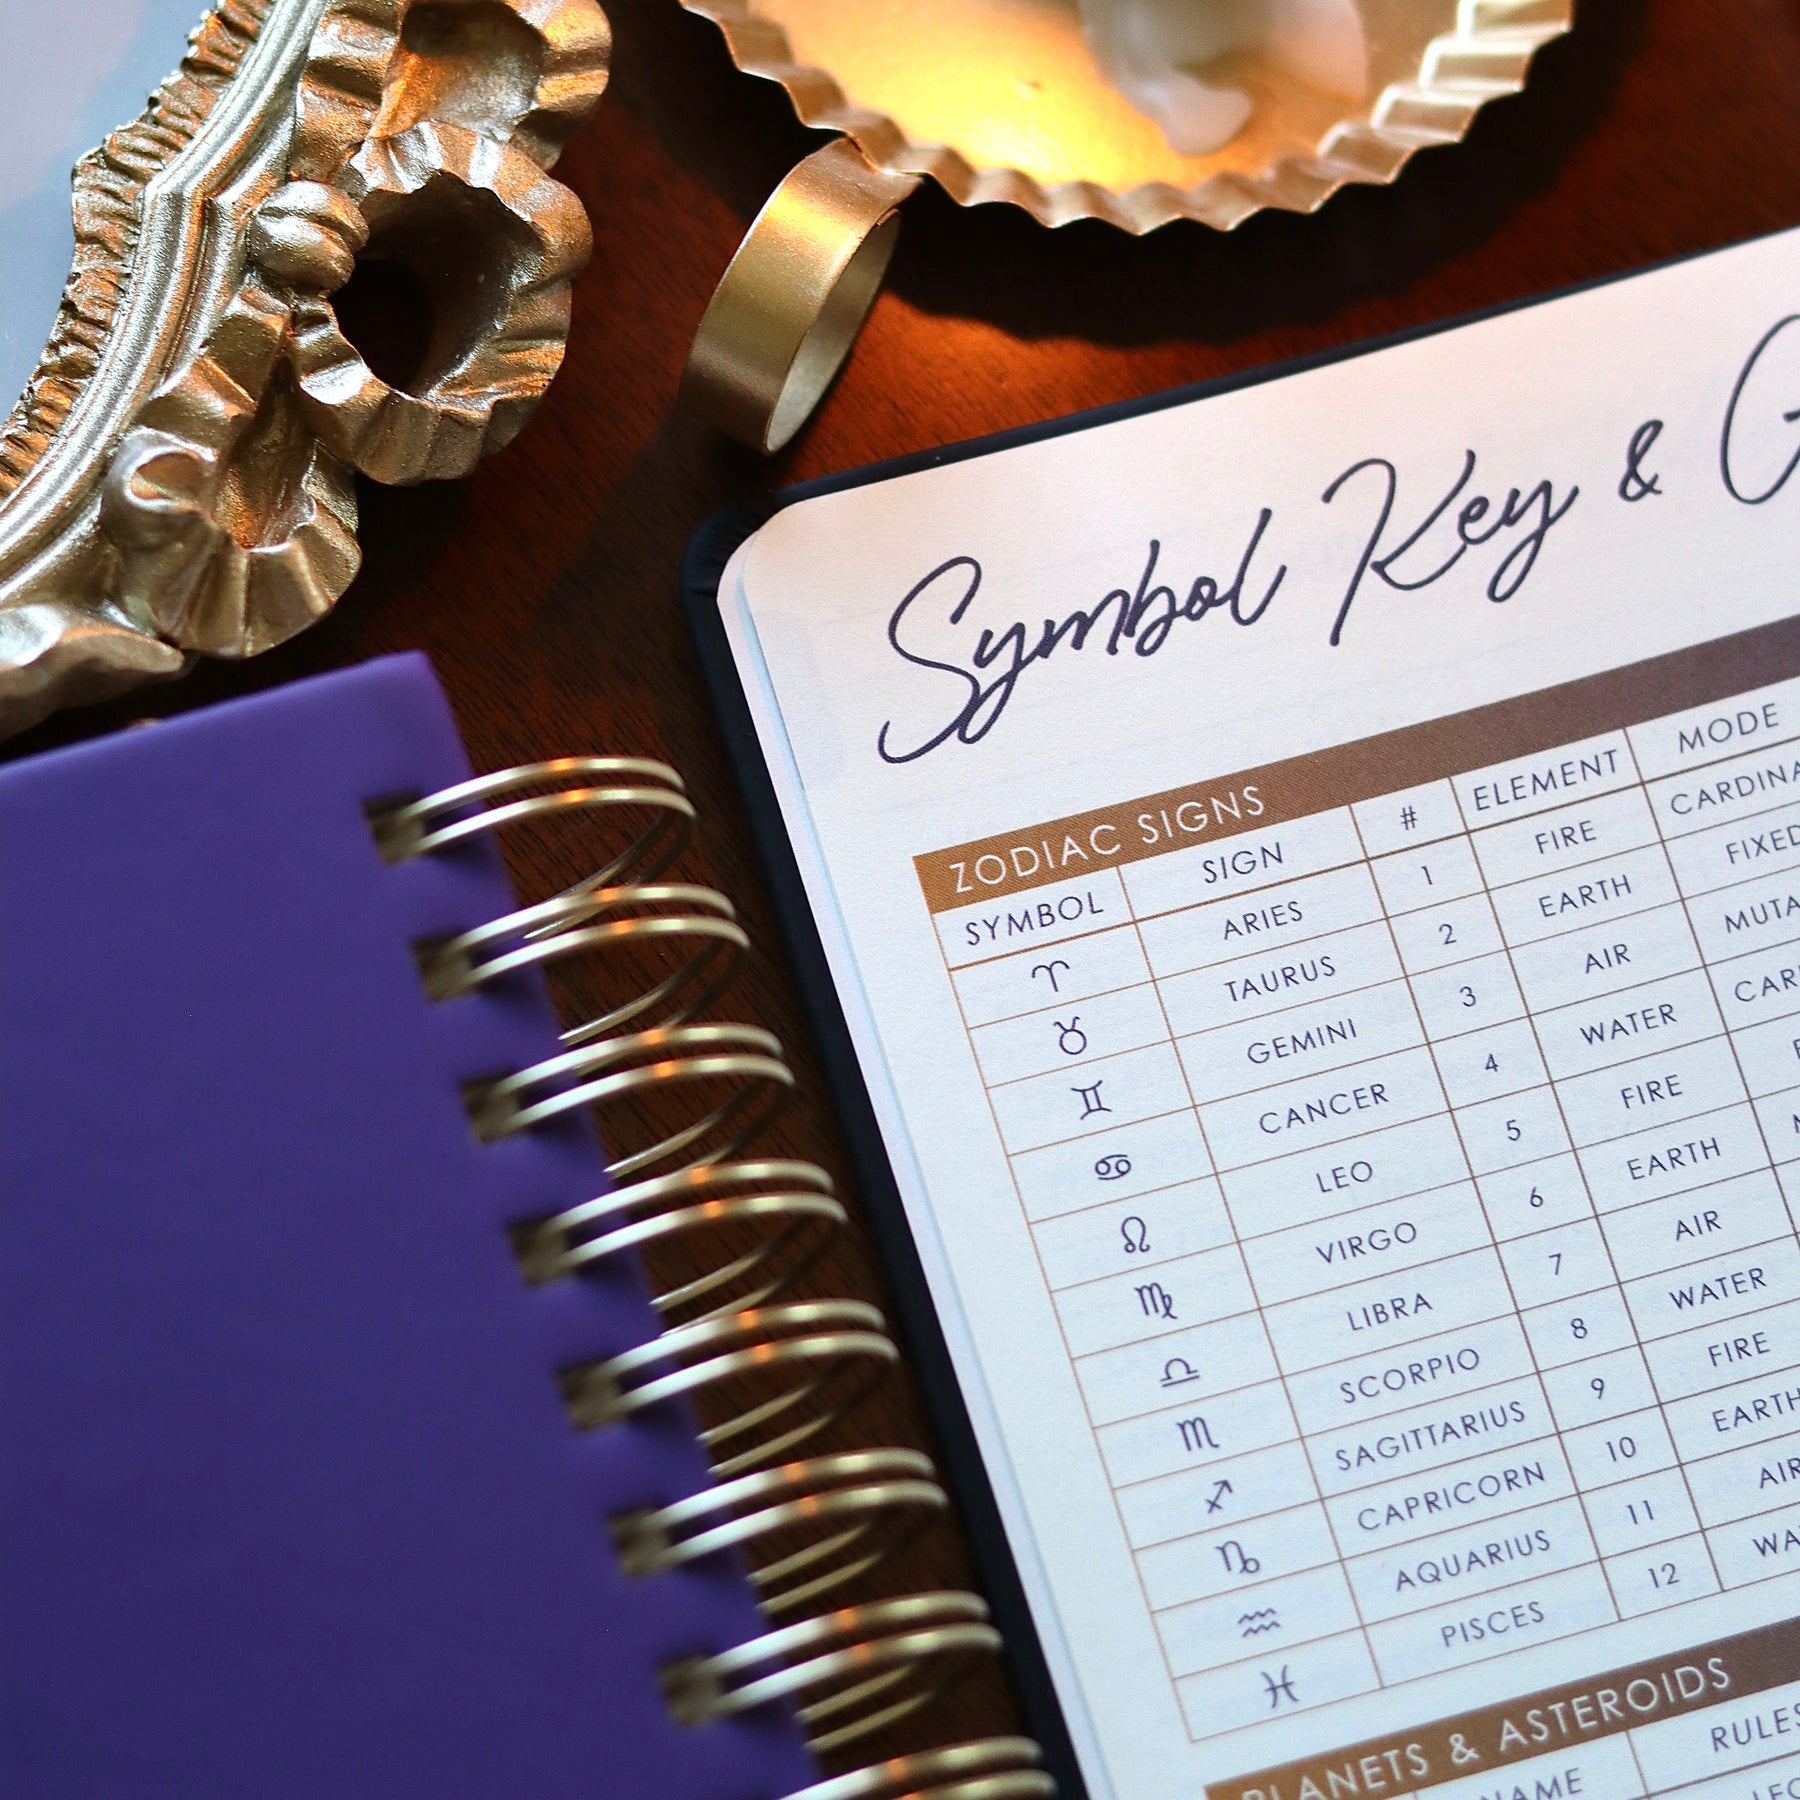 Symbol Key &
ZODIAC SIGNS
SYMBOL SIGN # ELEMENT MODE
♈︎ ARIES 1 FIRE CARDINA
♉︎ TAURUS 2 EARTH FIXED
♊︎ GEMINI 3 AIR MUTA
♋︎ CANCER 4 WATER CAR
♌︎ LEO 5 FIRE
♍︎ VIRGO 6 EARTH
♎︎ LIBRA 7 AIR
♏︎ SCORPIO 8 WATER
♐︎ SAGITTARIUS 9 FIRE
♑︎ CAPRICORN 10 EARTH
♒︎ AQUARIUS 11 AIR
♓︎ PISCES 12 WA
PLANETS & ASTEROIDS
NAME RULES
LEO